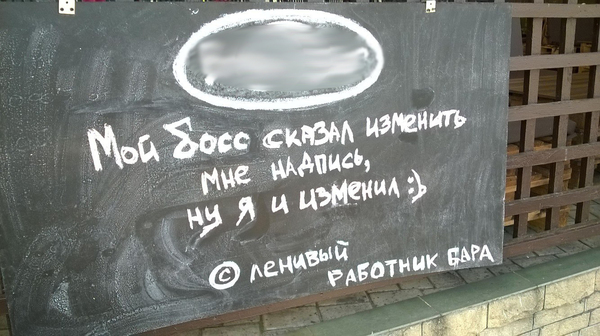 Мой босс сказал изменить
мне надпись,
ну я и изменил :)
© ленивый
работник бара